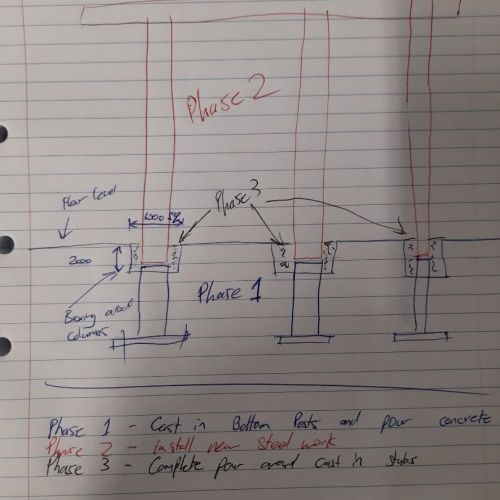 Phase 2
Floor level
1000 SQ
Phase 3
2000
Phase 1
Boxing around
columns
Phase 1 - Cast in Bottom Posts and pour concrete
Phase 2 - install new steel work
Phase 3 - Complete pour around cast in stubs